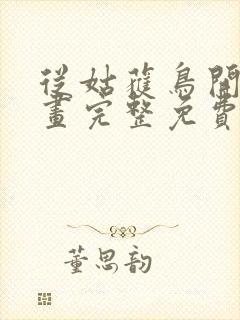 從姑蘸鳥開
畫完整免費
董思韵